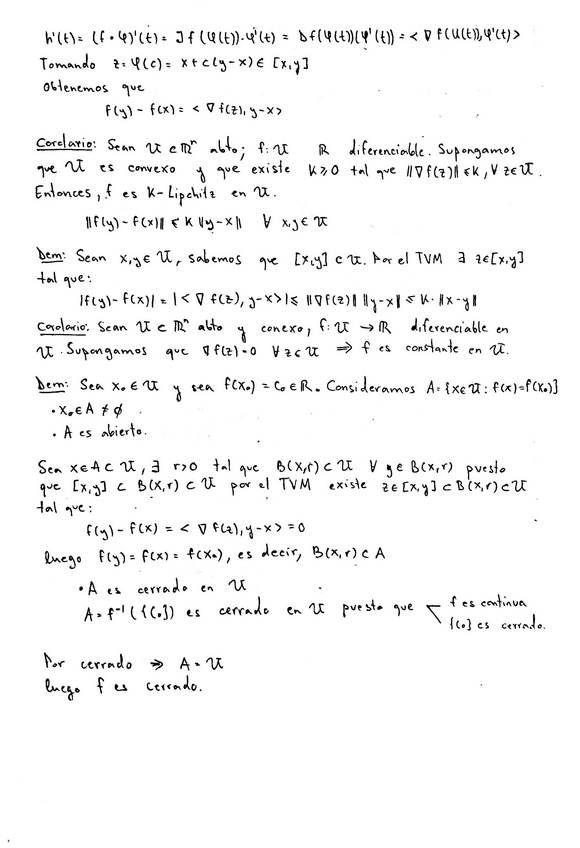 h'(t) = (f∘φ)'(t) = Jf(φ(t))·φ'(t) = Df(φ(t))(φ'(t)) = <∇f(φ(t)), φ'(t)>
Tomando z = φ(c) = x + c(y-x) ∈ [x,y]
Obtenemos que
f(y) - f(x) = <∇f(z), y-x>
Corolario: Sean U ⊂ ℝⁿ abto; f: U ℝ diferenciable. Supongamos
que U es convexo y que existe K≥0 tal que ||∇f(z)|| ≤ K, ∀ z∈U.
Entonces, f es K-Lipchitz en U.
||f(y) - f(x)|| ≤ K ||y-x|| ∀ x,y ∈ U
Dem: Sean x,y ∈ U, sabemos que [x,y] ⊂ U. Por el TVM ∃ z∈[x,y]
tal que:
|f(y)-f(x)| = |<∇f(z), y-x>| ≤ ||∇f(z)|| ||y-x|| ≤ K·||x-y||
Corolario: Sean U ⊂ ℝⁿ abto y conexo, f: U → ℝ diferenciable en
U. Supongamos que ∇f(z)=0 ∀ z ∈ U ⇒ f es constante en U.
Dem: Sea x₀ ∈ U y sea f(x₀) = C₀ ∈ ℝ. Consideramos A = {x∈U : f(x)=f(x₀)}
• x₀ ∈ A ≠ ∅
• A es abierto.
Sea x∈A⊂U, ∃ r>0 tal que B(x,r) ⊂ U ∀ y∈B(x,r) puesto
que [x,y] ⊂ B(x,r) ⊂ U por el TVM existe z∈[x,y]⊂B(x,r)⊂U
tal que:
f(y) - f(x) = <∇f(z), y-x> = 0
luego f(y) = f(x) = f(x₀), es decir, B(x,r) ⊂ A
• A es cerrado en U
A = f⁻¹({C₀}) es cerrado en U puesto que f es continua
{C₀} es cerrado.
Por cerrado ⇒ A = U
luego f es cerrado.